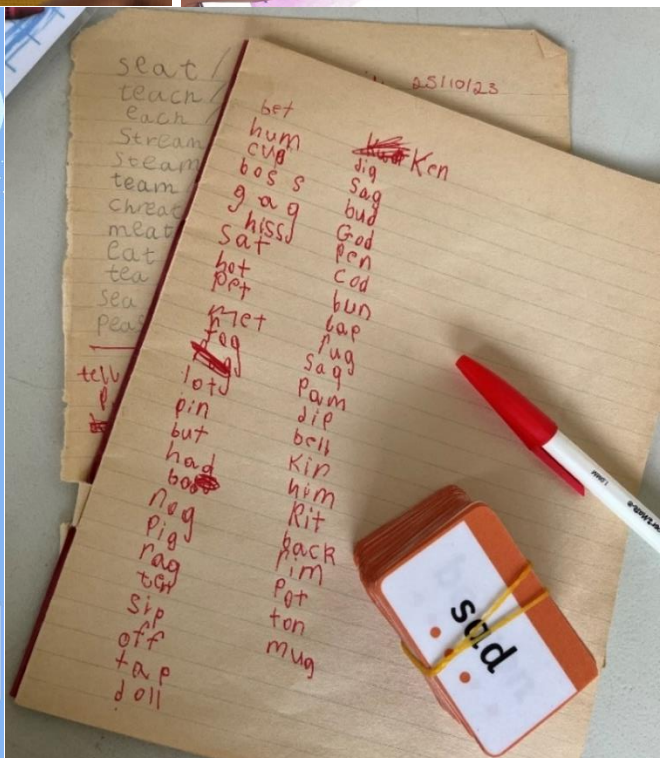 seat /
teach /
each /
Stream
Steam
team
cheat
meat
eat
tea
sea
peas
tell
25/10/23
bet
hum
cug
boss
gag
hiss
sat
hot
pet
met
fog
lots
pin
but
had
nog
pig
rag
ten
sip
off
tap
doll
Ken
dig
sag
bud
God
pen
cod
bun
lap
rug
sag
pam
dip
bell
Kin
him
Kit
back
rim
pot
ton
mug
sad